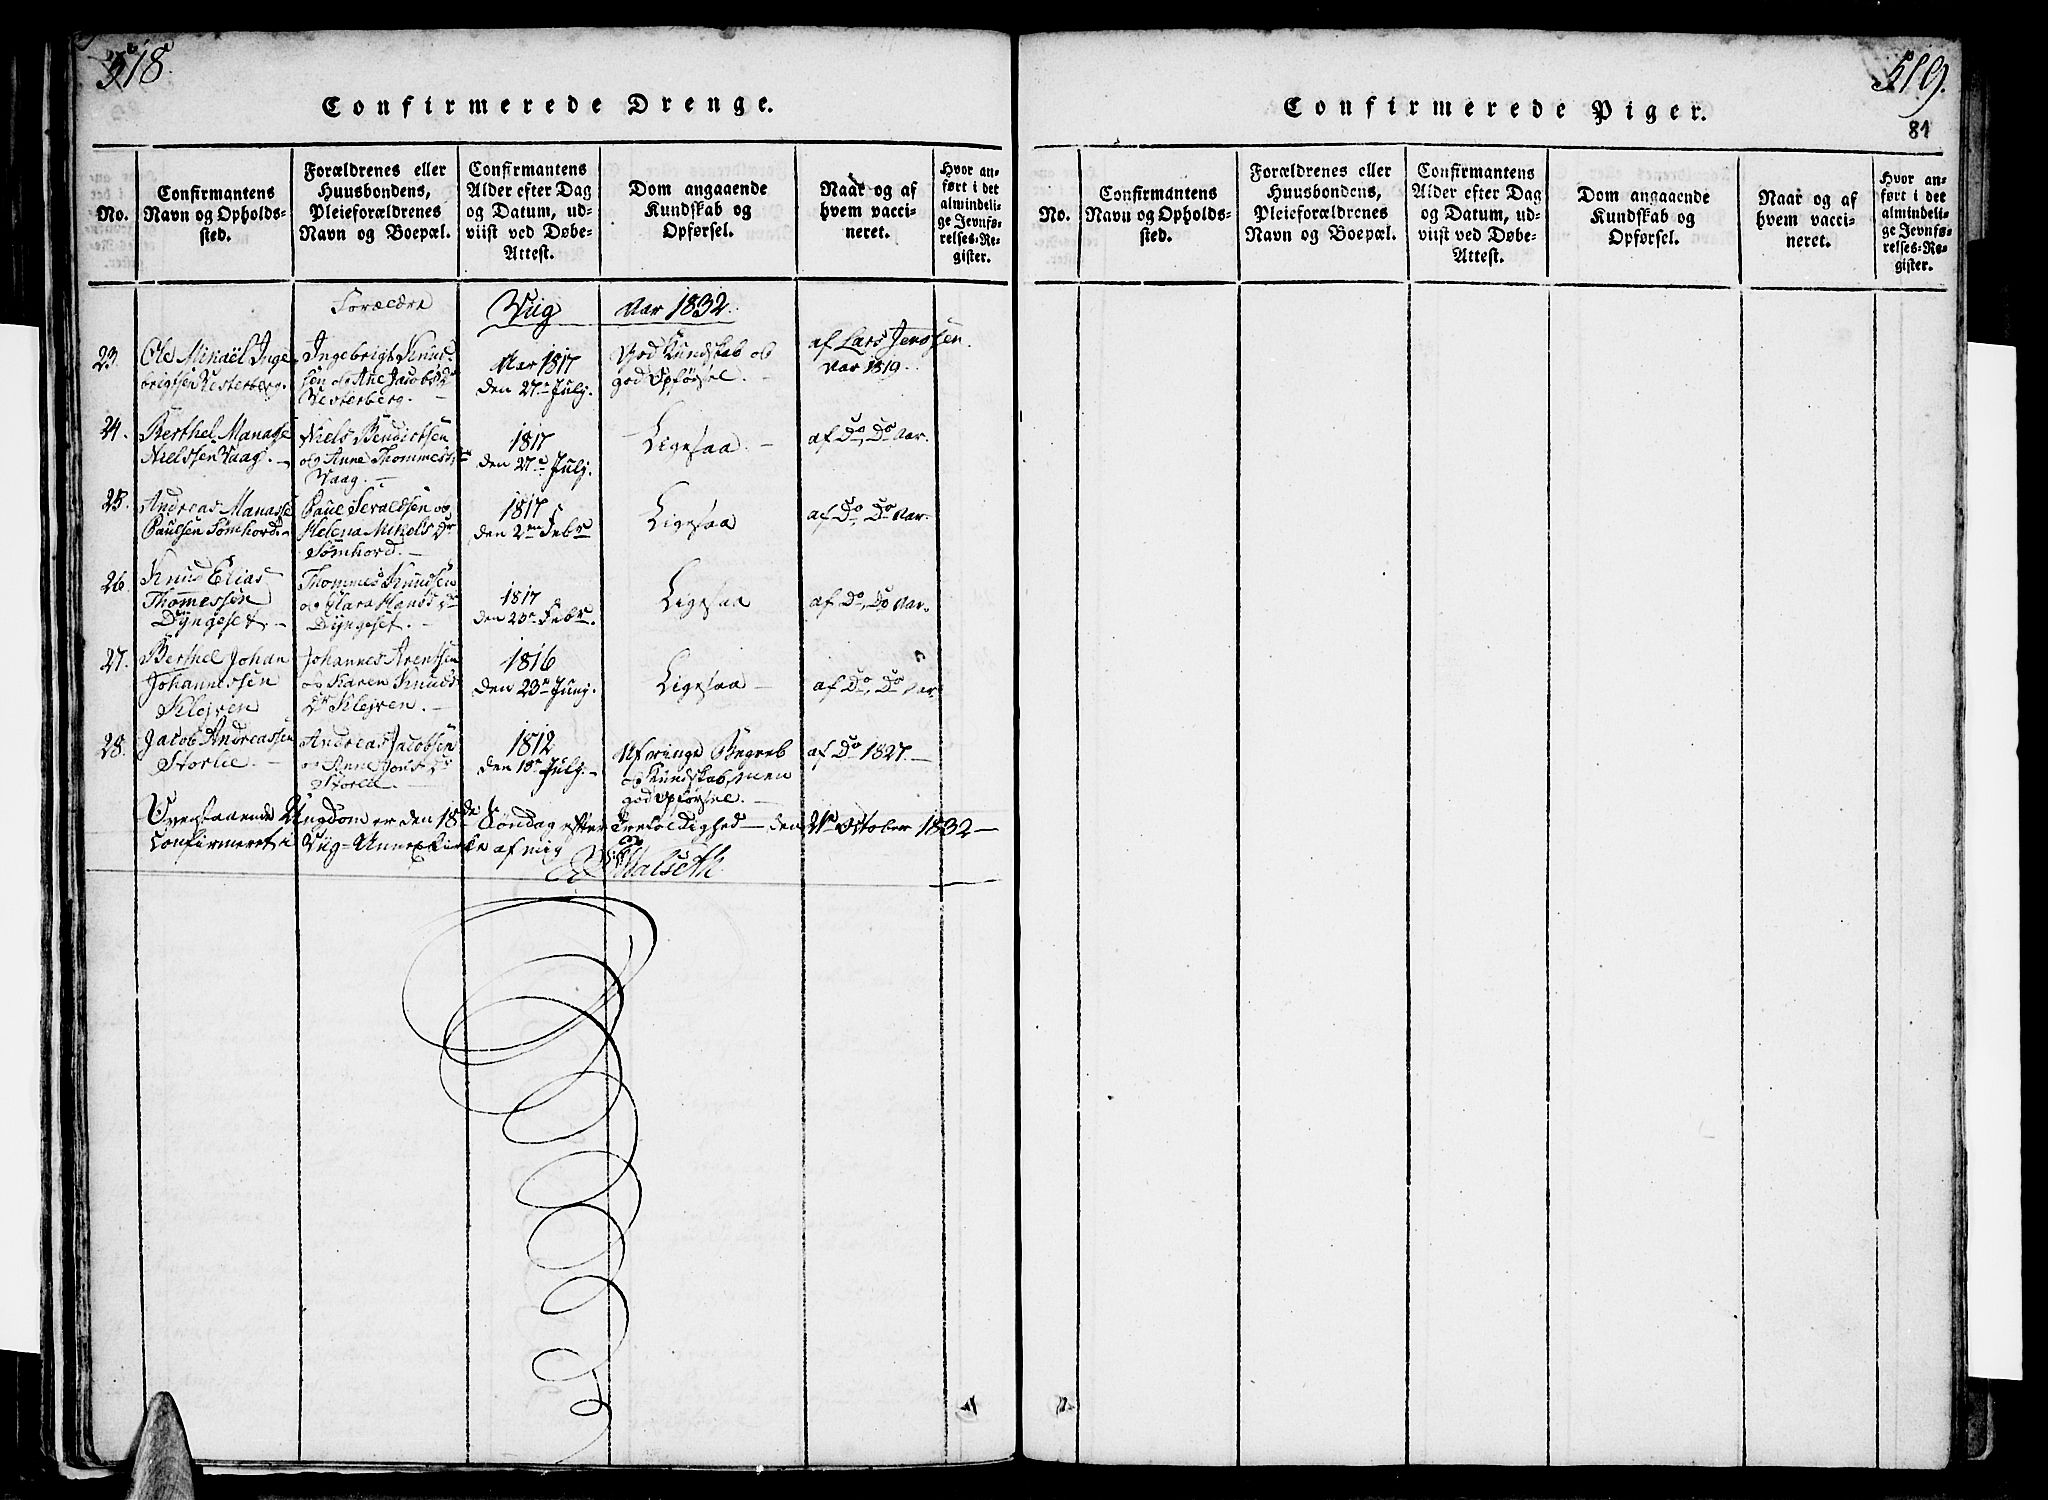 518.
Confirmerede Drenge.
No.
Confirmantens
Navn og Opholds-
sted.
Forældrenes eller
Huusbondens,
Pleieforældrenes
Navn og Boepæl.
Confirmantens
Alder efter Dag
og Datum, ud-
viist ved Døbe-
Attest.
Dom angaaende
Kundskab og
Opførsel.
Naar og af
hvem vacci-
neret.
Hvor an-
ført i det
almindeli-
ge Jevnfø-
relses-Re-
gister.
Forældre
Viig
Aar 1832.
23.
Ole Mikaël Inge
brigtsen Vesterberg.
Ingebrigt Knud-
sen og Ane Jacobs Dr
Vesterberg. –
Aar 1817
den 27de Julj.
God Kundskab og
god Opførsel. –
af Lars Jenssen.
Aar 1819.
24.
Berthel Manasse
Nielssen Vaag. –
Niels Bendictsen
og Anne Thommesdr
Vaag. –
1817
den 27de Julj.
Ligesaa. –
af Do, Do Aar.
25.
Andreas Manasse
Paulsen Sømhord. –
Paul
og
Helena Mikels Dr
Sømhord. –
1817
den 2den Febr
Ligesaa
af Do, Do Aar.
26.
Knud Elias
Thomessen
Dyngeset. –
Thommes Knudsen
og Clara Hans Dr
Dyngeset. –
1817
den 23de Febr.
Ligesaa
af Do, Do Aar.
27.
Berthel Johan
Johannessen
Klejven
Johannes Arentsen
og Karen Knuds
Dr Klejven. –
1816
den 23de Junj.
Ligesaa –
af Do, Do Aar.
28.
Jacob Andreassen
Storlie. –
Andreas Jacobsen
og Anne Jons Dr
Storlie. –
1812
den 18de Julj. –
Af ringe Begreb
og Kundskab, men
god Opførsel. –
af Do 1827. –
Ovenstaaende Ungdom er den 18de Søndag efter Trefoldighed – den 21de October 1832 –
Confirmeret i Viig-Annexkirke af mig
Walseth.
519.
81
Confirmerede Piger.
No.
Confirmantens
Navn og Opholds-
sted.
Forældrenes eller
Huusbondens,
Pleieforældrenes
Navn og Boepæl.
Confirmantens
Alder efter Dag
og Datum, ud-
viist ved Døbe-
Attest.
Dom angaaende
Kundskab og
Opførsel.
Naar og af
hvem vacci-
neret.
Hvor an-
ført i det
almindeli-
ge Jevnfø-
relses-Re-
gister.